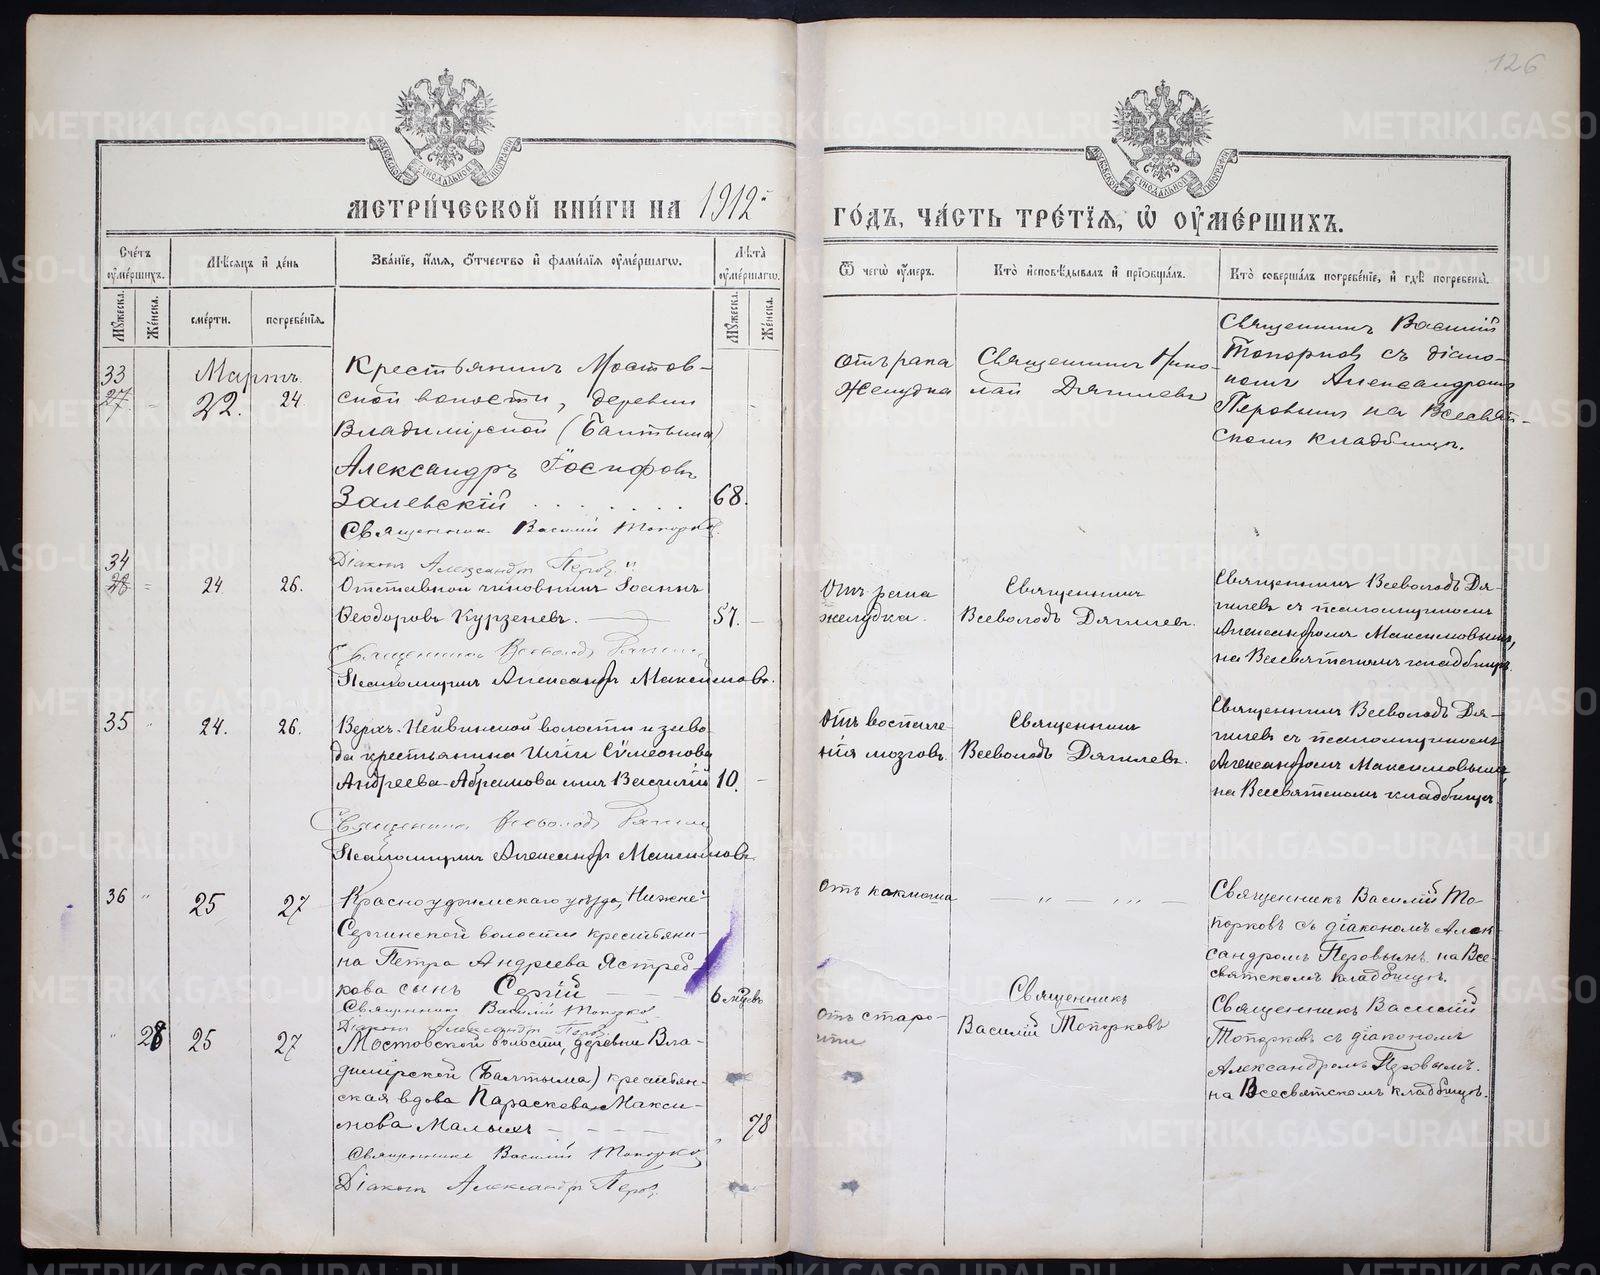 126
МЕТРИ́ЧЕСКОЙ КНИ́ГИ НА 1912
ГО́ДЪ, ЧА́СТЬ ТРЕ́ТІѦ, Ѡ҆ ОУ҆МЕ́РШИХЪ.
Сче́тъ оу҆ме́ршихъ.
Мѣ́сяцъ и҆ де́нь
Зва́нїе, и҆́мя, ѻ҆́тчество и҆ фами́лїя оу҆ме́ршагѡ.
Лѣ́та оу҆ме́ршагѡ.
Ѿ чегѡ̀ оу҆́меръ.
Кто̀ и҆сповѣ́дывалъ и҆ прїѻбща́лъ.
Кто̀ соверша́лъ погребе́нїе, и҆ гдѣ̀ погребены̀.
Му́жеска.
Же́нска.
сме́рти.
погребе́нїя.
Му́жеска.
Же́нска.
33
27
Мартъ
22.
24.
Крестьянинъ Мостов-
ской волости, деревни
Владимірской (Балтыма)
Александръ Іосифовъ
Залевскій
68.
Священникъ Василій Топорковъ
Діаконъ Александръ Перовъ
отъ рака
желудка
Священникъ Нико-
лай Дягилевъ
Священникъ Василій
Топорковъ съ діако-
номъ Александромъ
Перовымъ на Всесвят-
скомъ кладбищѣ.
34
28
24
26.
Отставной чиновникъ Іоаннъ
Ѳеодоровъ Курзеневъ.
57.
Священникъ Всеволодъ Дягилевъ
Псаломщикъ Александръ Максимовъ.
Отъ рака
желудка.
Священникъ
Всеволодъ Дягилевъ.
Священникъ Всеволодъ Дя-
гилевъ съ псаломщикомъ
Александромъ Максимовымъ,
на Всесвятскомъ кладбищѣ.
35
24.
26.
Верхъ-Нейвинской волости и заво-
да крестьянина Иліи Сѵмеонова
Андреева-Абрамова сынъ Василій
10.
Священникъ Всеволодъ Дягилевъ
Псаломщикъ Александръ Максимовъ.
Отъ воспале-
нія мозговъ.
Священникъ
Всеволодъ Дягилевъ.
Священникъ Всеволодъ Дя-
гилевъ съ псаломщикомъ
Александромъ Максимовымъ
на Всесвятскомъ кладбищѣ.
36
25
27
Красноуфимскаго уѣзда, Нижне-
Сергинской волости крестьяни-
на Петра Андреева Ястреб-
кова сынъ Сергій
6 мѣсѧцевъ
Священникъ Василій Топорковъ
Діаконъ Александръ Перовъ
отъ коклюша
Священникъ Василій То-
порковъ съ діакономъ Алек-
сандромъ Перовымъ на Все-
святскомъ кладбищѣ.
28
25
27
Мостовской волости, деревни Вла-
димірской (Балтыма) крестьян-
ская вдова Параскева Макси-
мова Малыхъ
78
Священникъ Василій Топорковъ
Діаконъ Александръ Перовъ
отъ старо-
сти
Священникъ
Василій Топорковъ
Священникъ Василій
Топорковъ съ діакономъ
Александромъ Перовымъ.
на Всесвятскомъ кладбищѣ.
METRIKI.GASO-URAL.RU